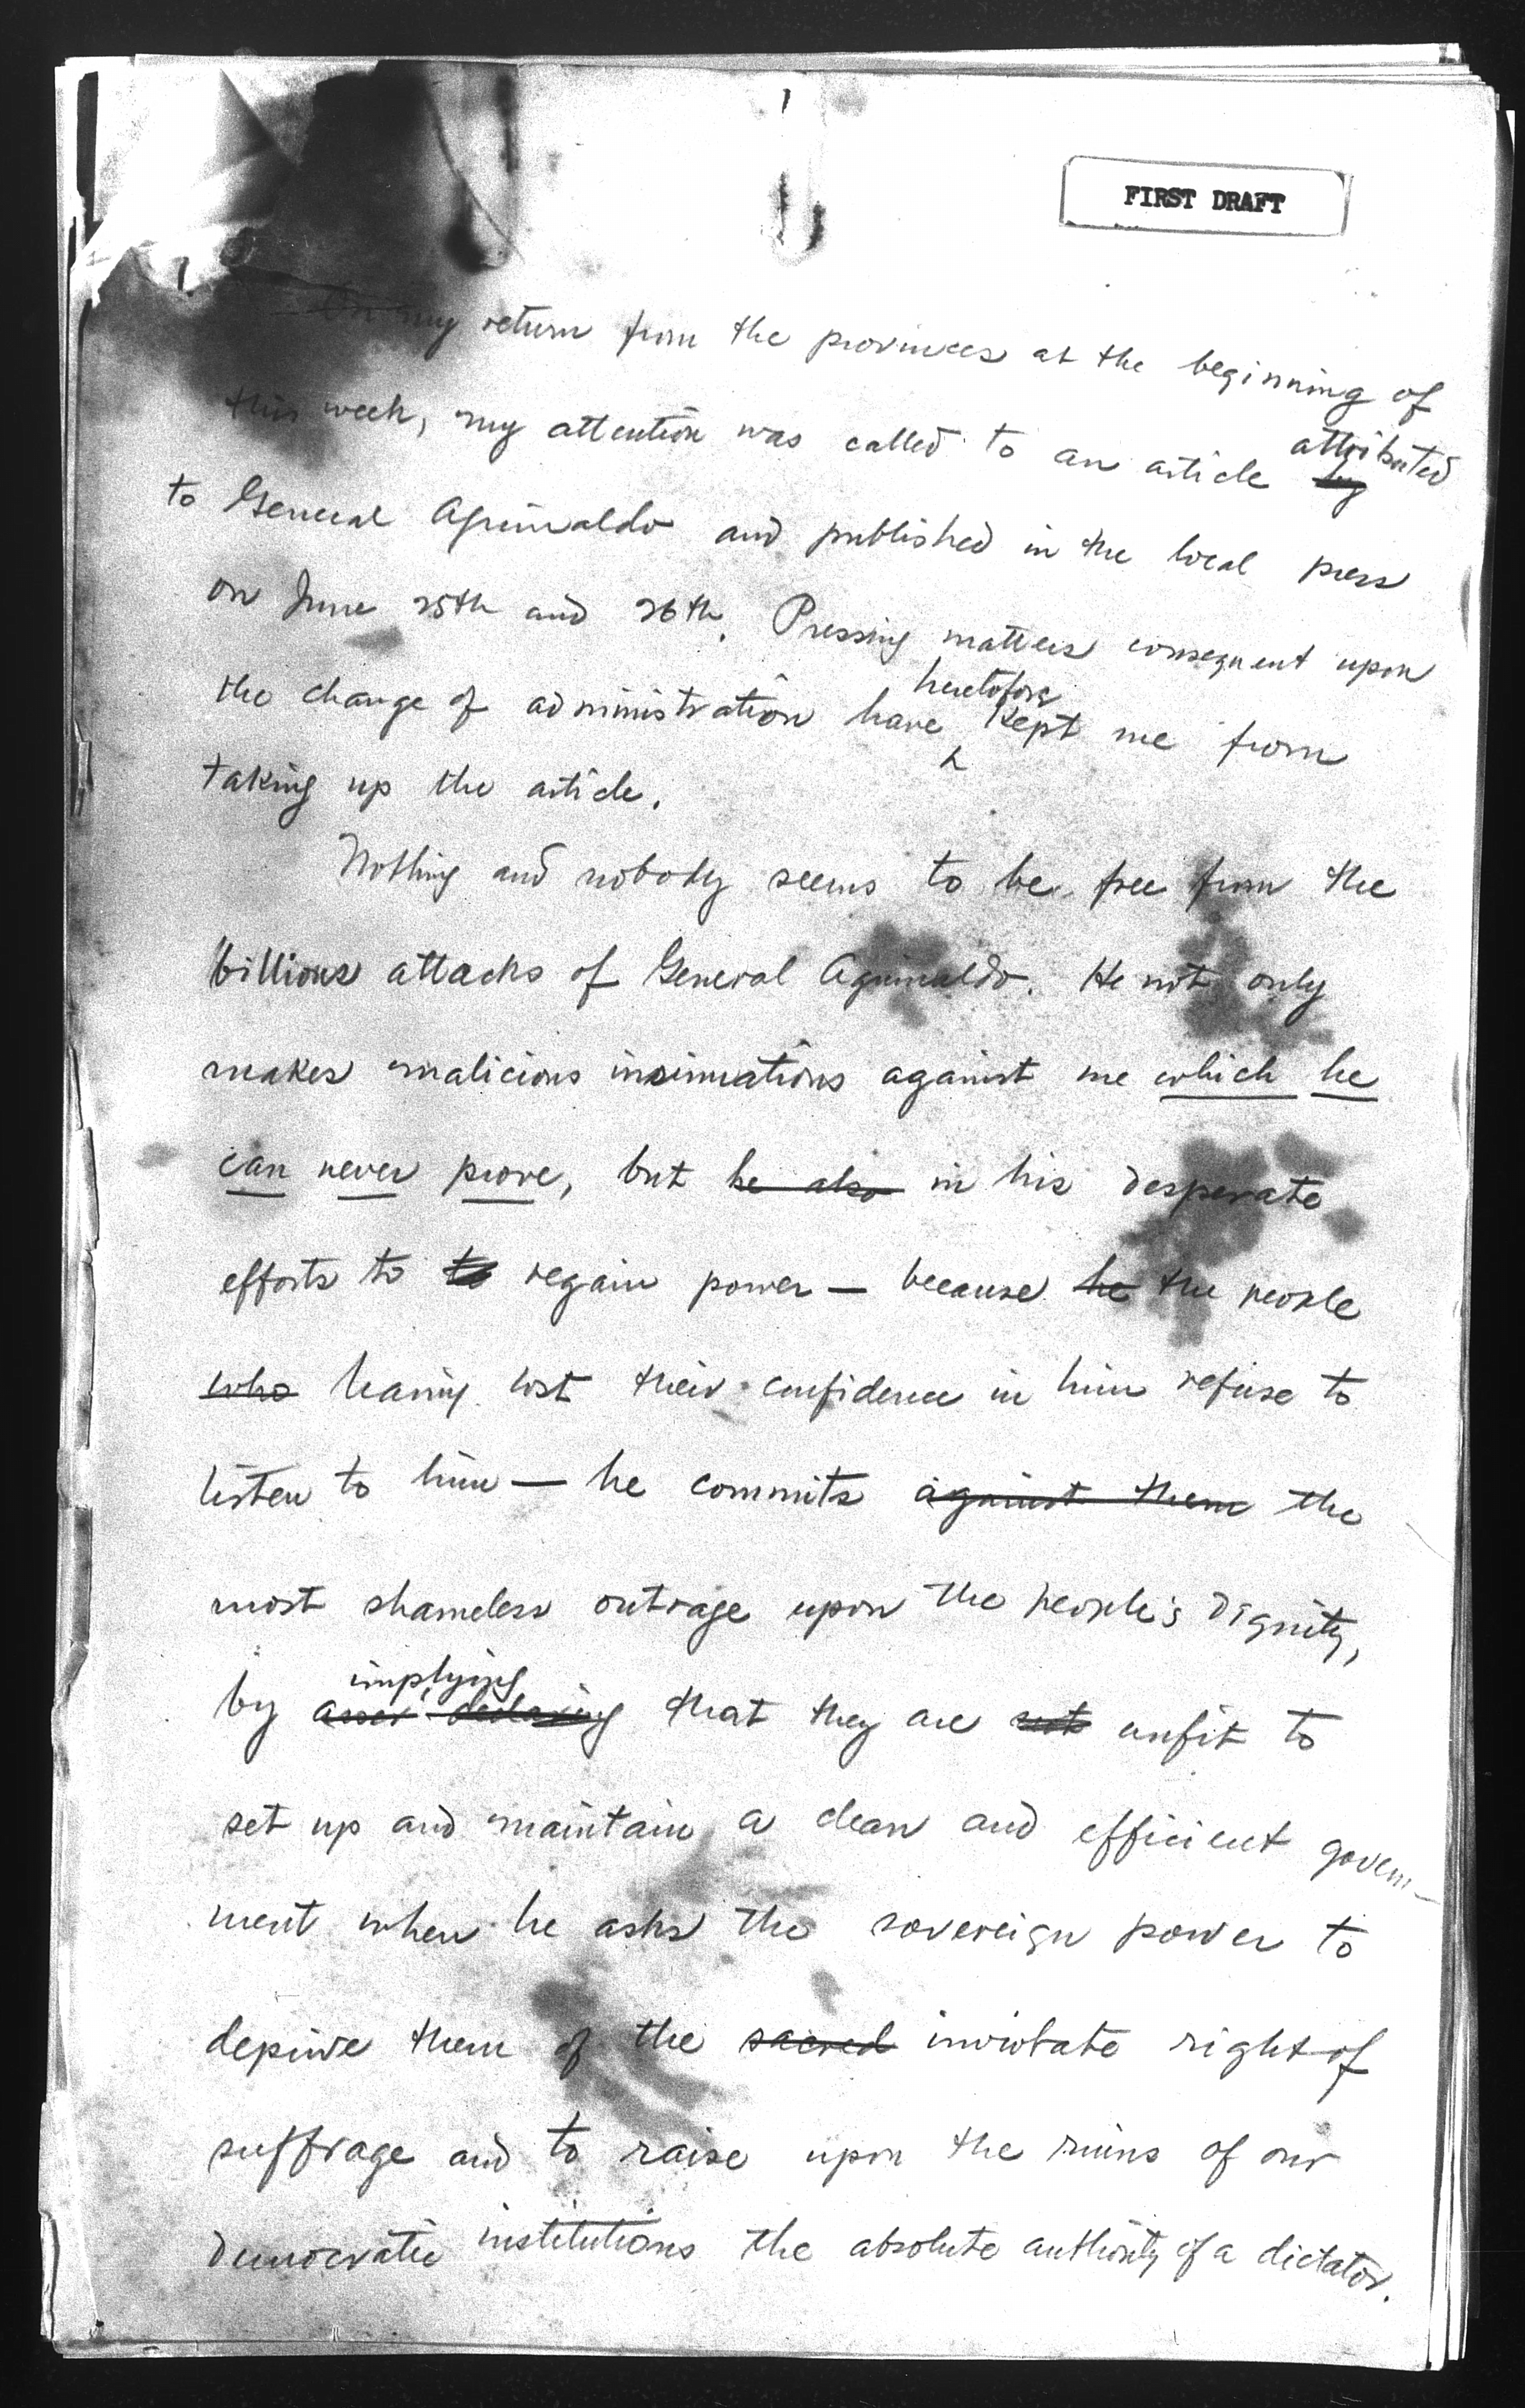 FIRST DRAFT
On my return from the provinces at the beginning of
this week, my attention was called to an article by attributed
to General Aguinaldo and published in the local press
on June 25th and 26th. Pressing matters consequent upon
the change of administration have heretofore kept me from
taking up the article.
Nothing and nobody seems to be free from the
billious attacks of General Aguinaldo. He not only
makes malicious insinuations against me which he
can never prove, but he also in his desperate
efforts to to regain power — because he the people
who having lost their confidence in him refuse to
listen to him — he commits against them the
most shameless outrage upon the people's dignity,
implying
by asser declaring that they are not unfit to
set up and maintain a clean and efficient govern-
ment when he asks the sovereign power to
deprive them of the sacred inviolate right of
suffrage and to raise upon the ruins of our
democratic institutions the absolute authority of a dictator.